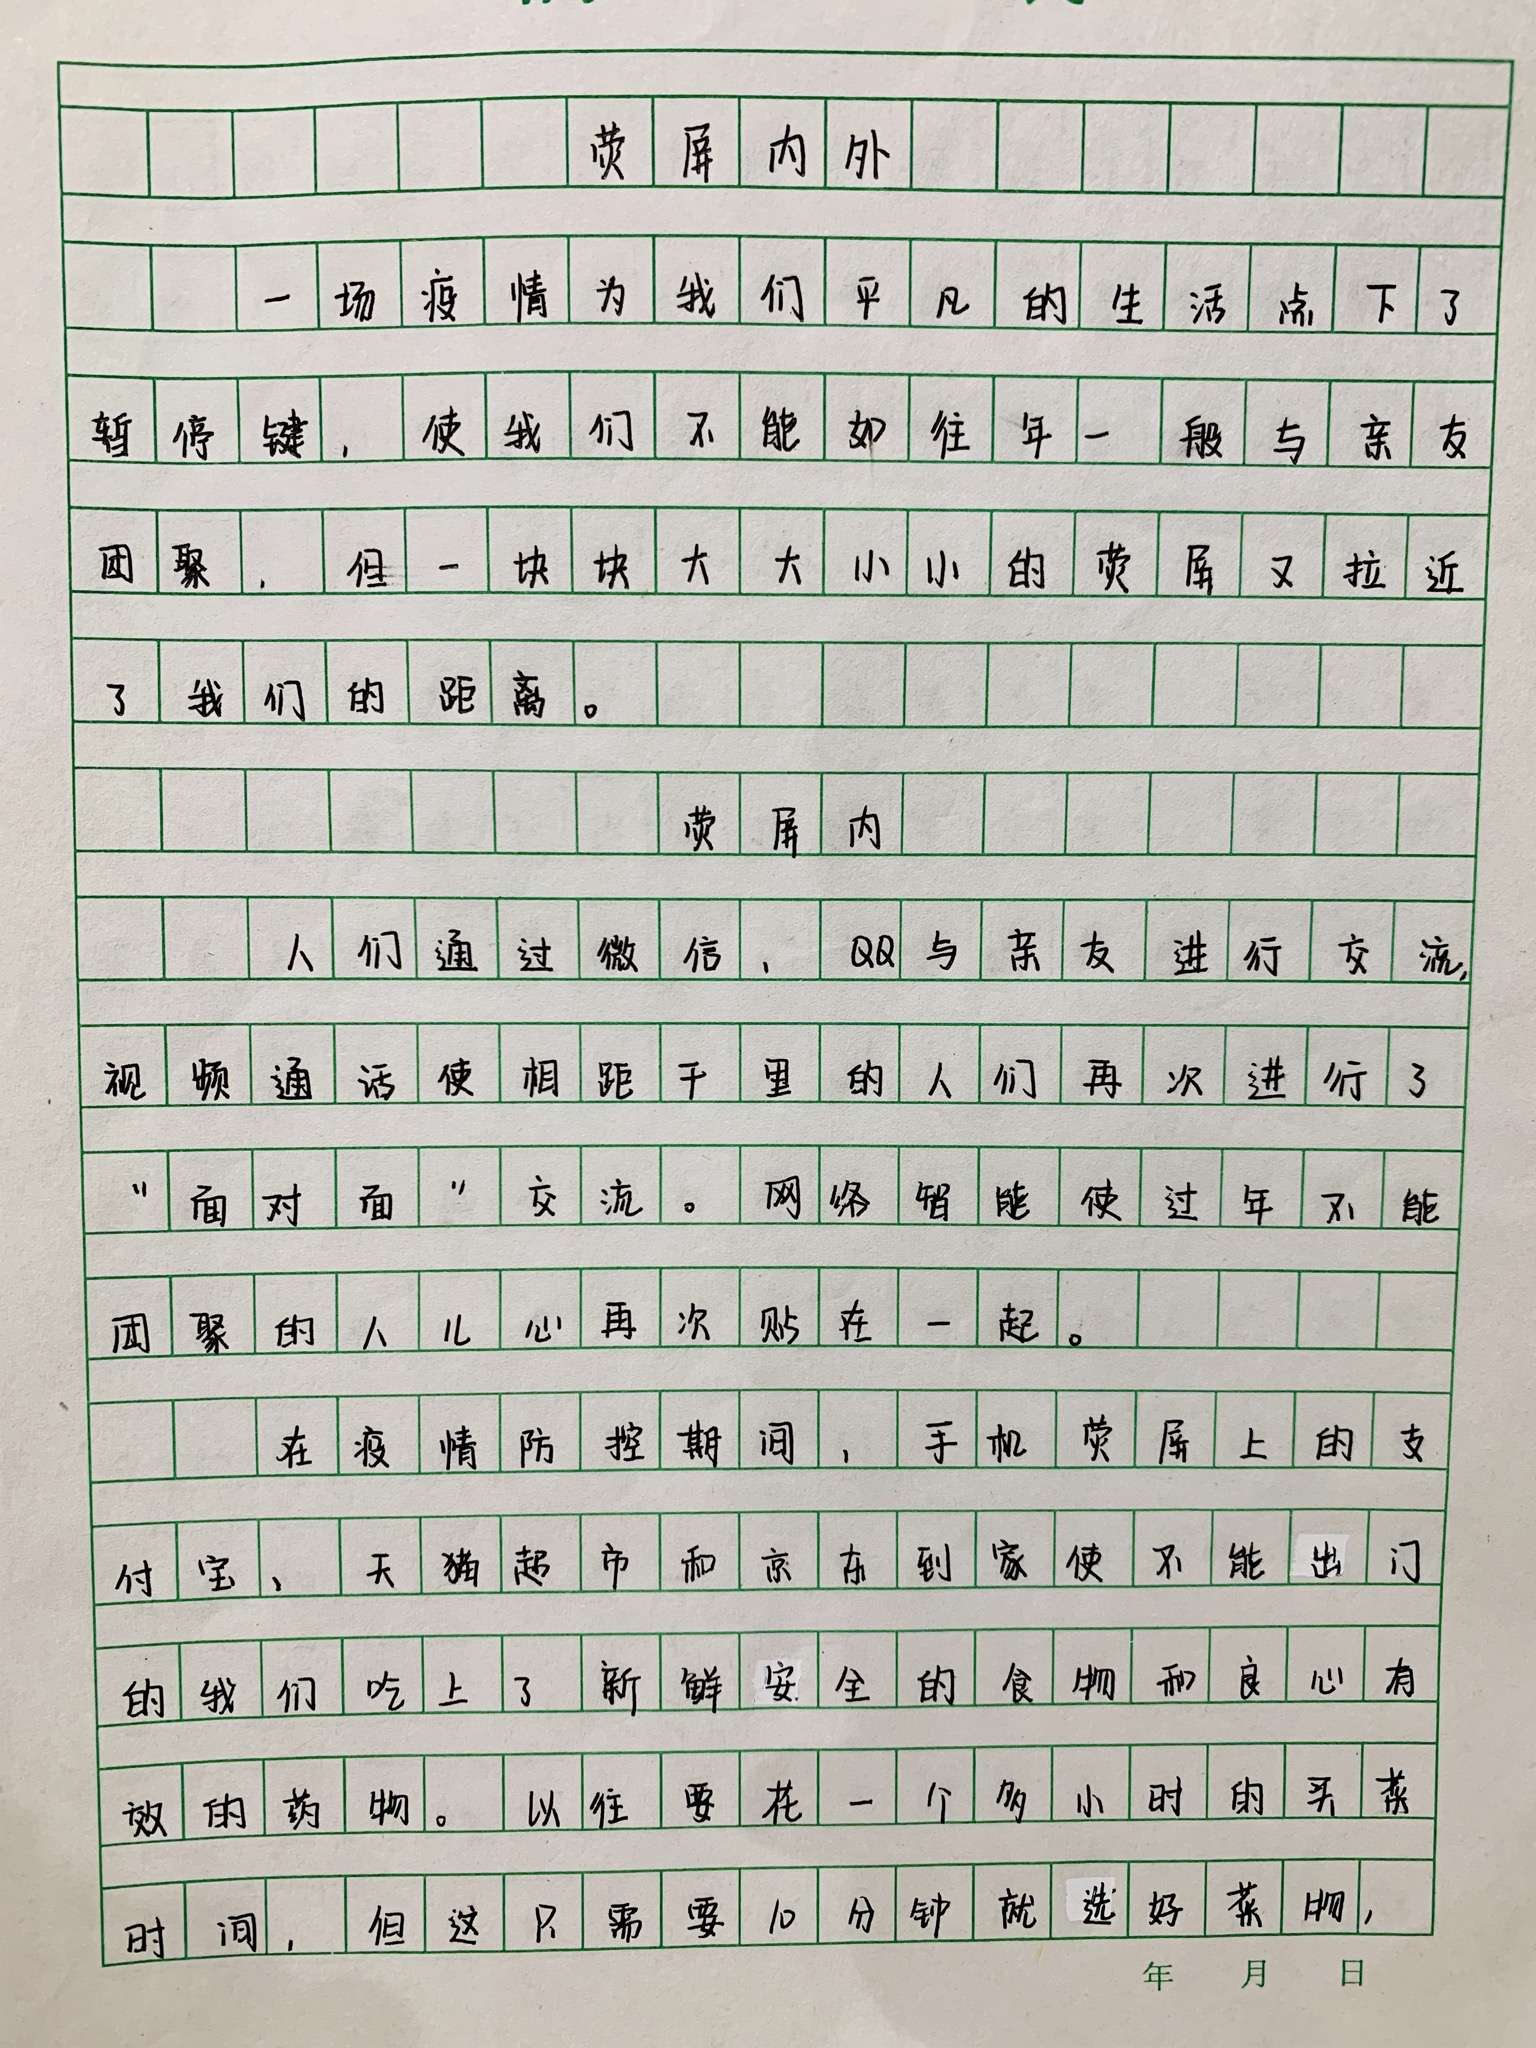 荧屏内外
一场疫情为我们平凡的生活点下了
暂停键，使我们不能如往年一般与亲友
团聚，但一块块大大小小的荧屏又拉近
了我们的距离。
荧屏内
人们通过微信、QQ与亲友进行交流，
视频通话使相距千里的人们再次进行了
“面对面”交流。网络智能使过年不能
团聚的人儿心再次贴在一起。
在疫情防控期间，手机荧屏上的支
付宝、天猫超市和京东到家使不能出门
的我们吃上了新鲜安全的食物和良心有
效的药物。以往要花一个多小时的买菜
时间，但这只需要10分钟就选好菜物，
年 月 日